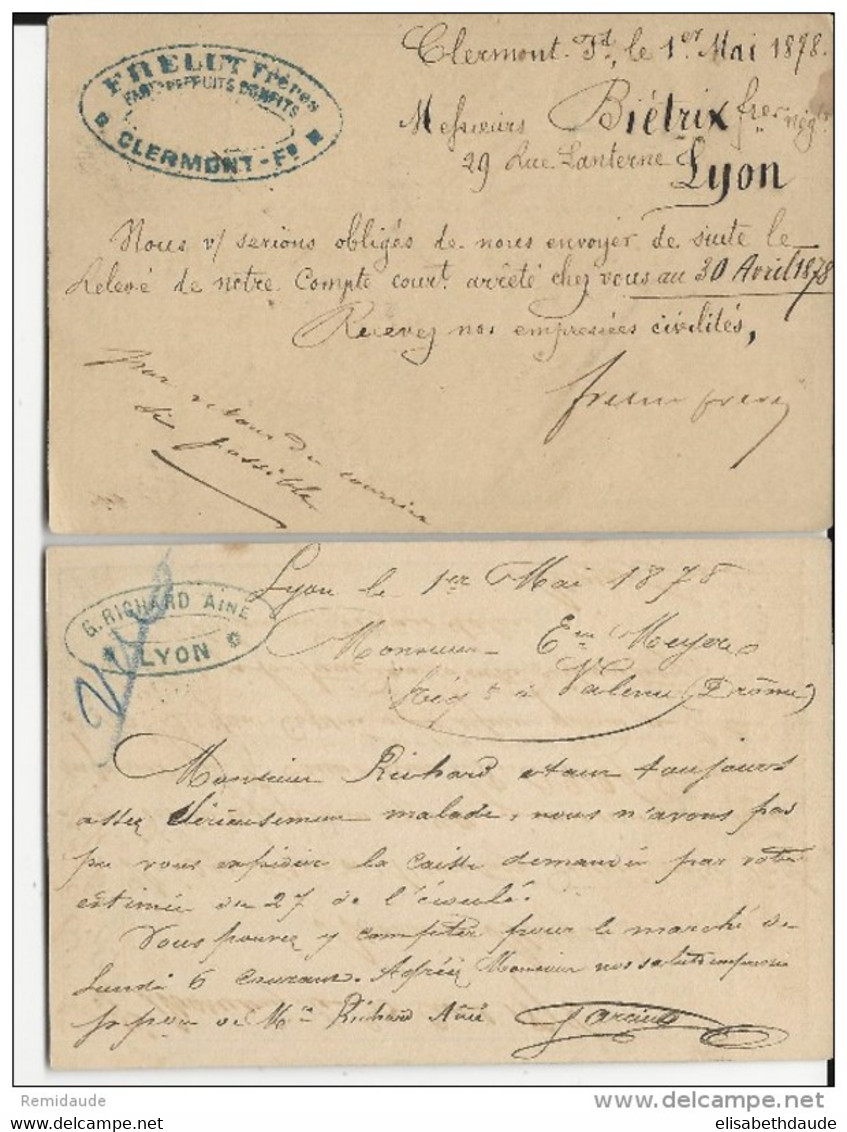 FRELUT Frères
FABts DE FRUITS CONFITS
CLERMONT-Fd
Clermont-Fd, le 1er Mai 1878.
Messieurs Biétrix frères négts
29 Rue Lanterne Lyon
Nous v/ serions obligés de nous envoyer de suite le
Relevé de notre Compte court arrêté chez vous au 30 Avril 1878
Recevez nos empressées civilités,
par retour du courrier
si possible
G. RICHARD AINÉ
LYON
Lyon le 1er Mai 1878
Monsieur Em Meyer
Négt à Valence (Drôme)
Monsieur Richard étant toujours
assez sérieusement malade, nous n'avons pas
pu vous expédier la caisse demandée par votre
estimée du 27 de l'écoulé.
Vous pouvez y compter pour le marché de
Lundi 6 courant. Agréez Monsieur nos salut empressés
Richard Aîné
Remidaude
delcampe.net
elisabethdaude